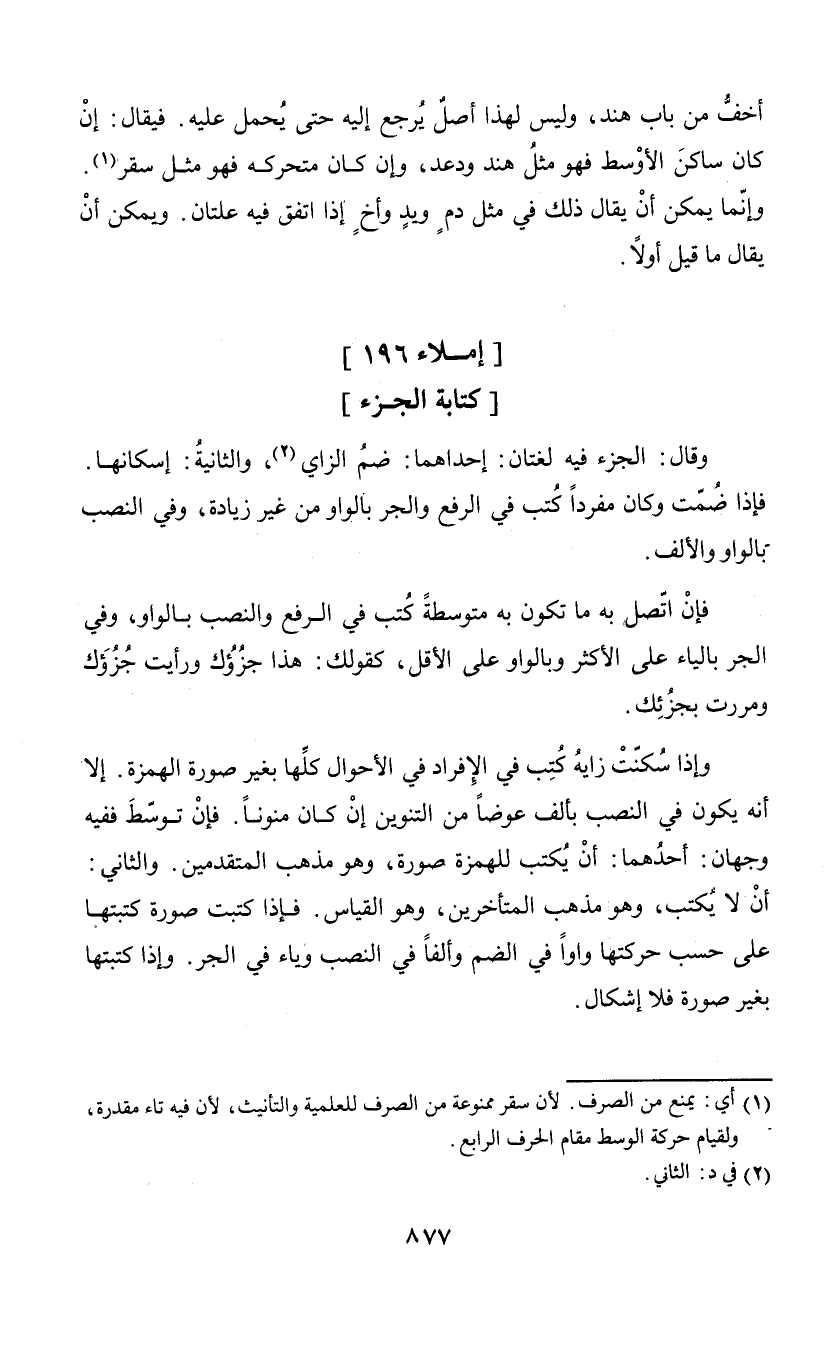 أخفُّ من باب هند، وليس لهذا أصلٌ يُرجع إليه حتى يُحمل عليه. فيقال: إنْ
كان ساكنَ الأوْسط فهو مثلُ هند ودعد، وإن كان متحركه فهو مثل سقر(١).
وإنّما يمكن أنْ يقال ذلك في مثل دمٍ ويدٍ وأخٍ إذا اتفق فيه علتان. ويمكن أنْ
يقال ما قيل أولاً.
[ إملاء ١٩٦ ]
[ كتابة الجزء ]
وقال: الجزء فيه لغتان: إحداهما: ضمُ الزاي(٢)، والثانيةُ: إسكانها.
فإذا ضُمّت وكان مفرداً كُتب في الرفع والجر بالواو من غير زيادة، وفي النصب
بالواو والألف.
فإنْ اتّصل به ما تكون به متوسطةً كُتب في الرفع والنصب بالواو، وفي
الجر بالياء على الأكثر وبالواو على الأقل، كقولك: هذا جزُؤُك ورأيت جُزُؤَك
ومررت بجزُئِك.
وإذا سُكنّتْ زايهُ كُتِب في الإفراد في الأحوال كلِّها بغير صورة الهمزة. إلا
أنه يكون في النصب بألف عوضاً من التنوين إنْ كان منوناً. فإنْ توسّطَ ففيه
وجهان: أحدُهما: أنْ يُكتب للهمزة صورة، وهو مذهب المتقدمين. والثاني:
أنْ لا يُكتب، وهو مذهب المتأخرين، وهو القياس. فإذا كتبت صورة كتبتها
على حسب حركتها واواً في الضم وألفاً في النصب وياء في الجر. وإذا كتبتها
بغير صورة فلا إشكال.
(١) أي: يمنع من الصرف. لأن سقر ممنوعة من الصرف للعلمية والتأنيث، لأن فيه تاء مقدرة،
ولقيام حركة الوسط مقام الحرف الرابع.
(٢) في د: الثاني.
٨٧٧